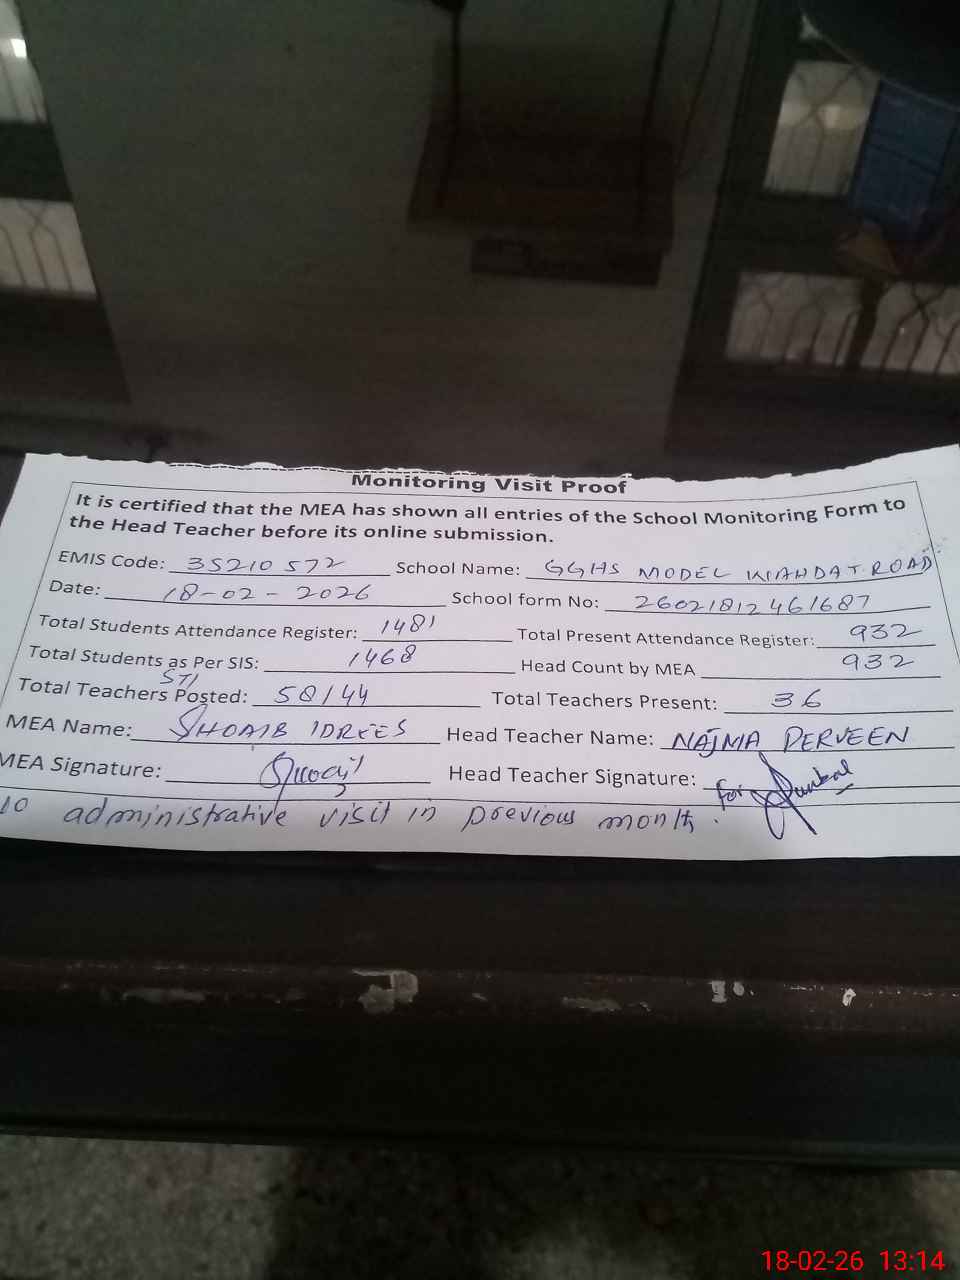 Monitoring Visit Proof
It is certified that the MEA has shown all entries of the School Monitoring Form to
the Head Teacher before its online submission.
EMIS Code: 35210572 School Name: GGHS MODEL WAHDAT ROAD
Date: 18-02-2026 School form No: 26021812461687
Total Students Attendance Register: 1481 Total Present Attendance Register: 932
Total Students as Per SIS: 1468 Head Count by MEA 932
STI
Total Teachers Posted: 50/44 Total Teachers Present: 36
MEA Name: SHOAIB IDREES Head Teacher Name: NAJMA PERVEEN
MEA Signature: Head Teacher Signature: for
10 administrative visit in previous month.
18-02-26 13:14